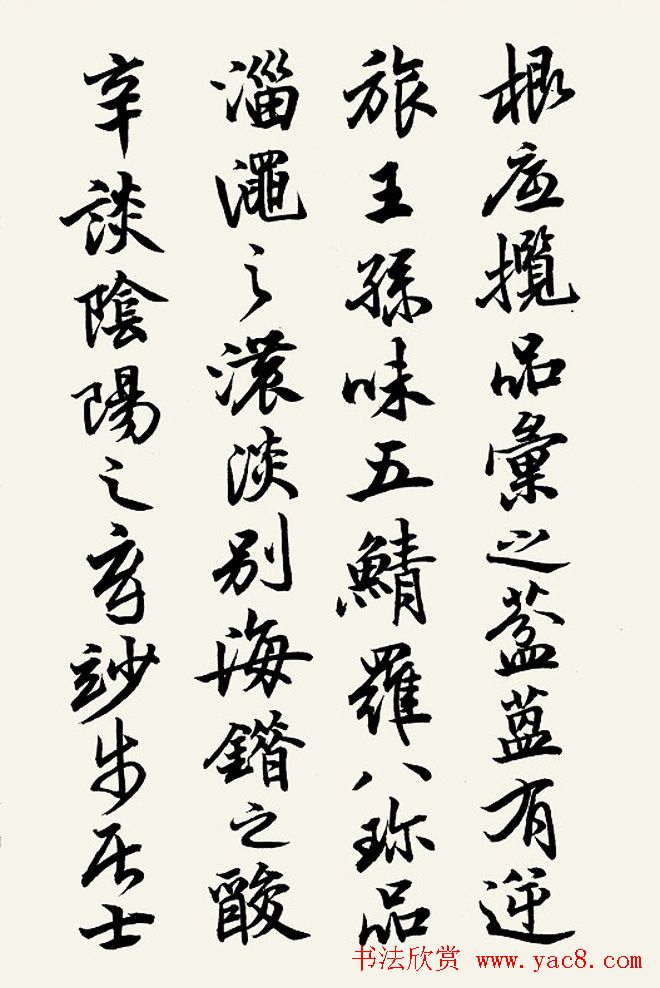 攬品彙之有逆
旅王孫味五鯖羅八珍品
淄澠之濃淡別海之酸
辛談陰陽之玅居士
书法欣赏 www.yac8.com